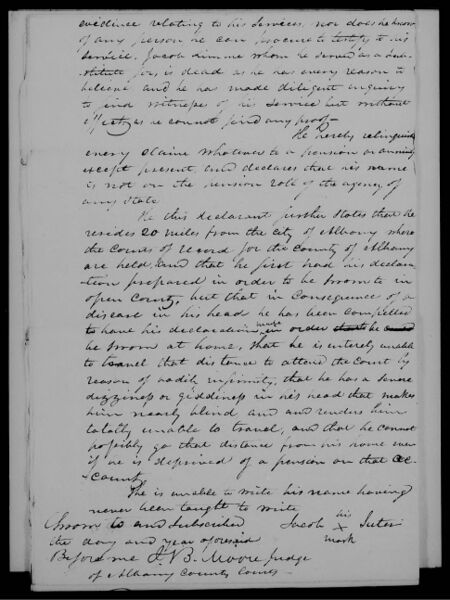 evidence relating to his services, nor does he know
of any person he can procure to testify to his
service. Jacob Simme whom he served as a sub-
stitute for is dead as he has every reason to
believe and he has made diligent enquiry
to find witness of his service but without
as he cannot find any proof
He hereby relinquish
every claim whatever to a pension or annuity
except present, and declares that his name
is not on the pension roll of the agency of
any state
He this declarant further states that he
resides 20 miles from the city of Albany where
the Courts of record for the County of Albany
are held, and that he first had his declara-
tion prepared in order to be sworn to in
open Court, but that in Consequence of a
disease in his head he has been compelled
to have his declaration made in order to be
sworn at home, that he is entirely unable
to travel that distance to attend the Court by
reason of bodily infirmity, that he has a severe
dizziness or giddiness in his head that makes
him nearly blind and and renders him
totally unable to travel, and that he cannot
possibly go that distance from his home even
if he is deprived of a pension on that ac-
count
He is unable to write his name having
never been taught to write
Sworn to and Subscribed
the day and year aforesaid
Jacob his X mark Suter
Before me J. B. Moore Judge
of Albany County Courts